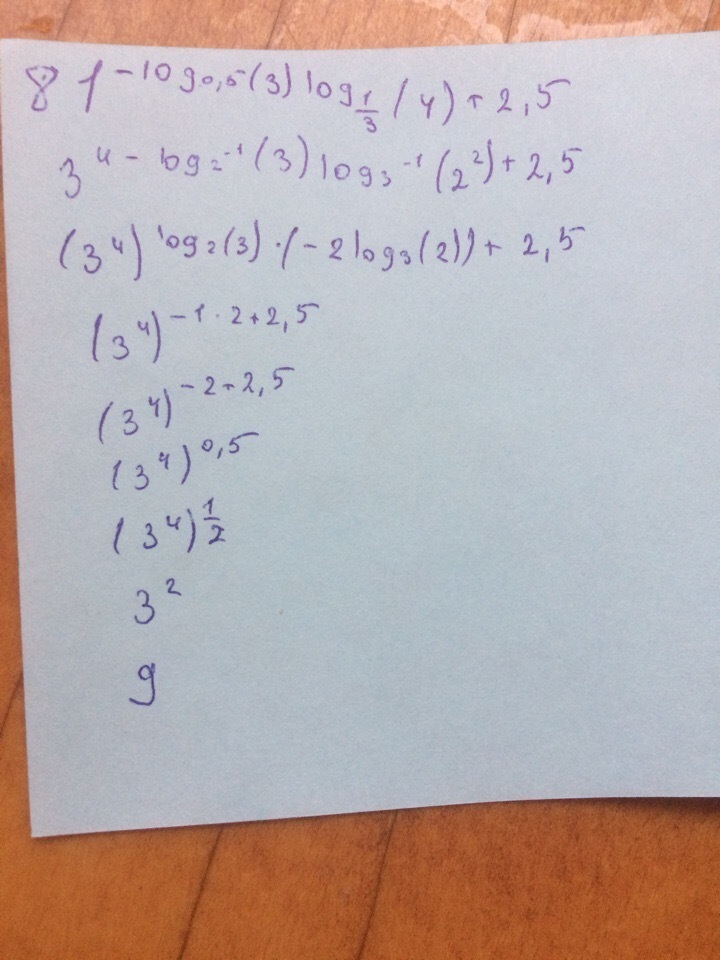 81^{-log_{0,5}(3) log_{\frac{1}{3}}(4) + 2,5}
3^{4 - log_{2^{-1}}(3) log_{3^{-1}}(2^2) + 2,5}
(3^4)^{log_2(3) · (-2 log_3(2)) + 2,5}
(3^4)^{-1 · 2 + 2,5}
(3^4)^{-2 + 2,5}
(3^4)^{0,5}
(3^4)^{\frac{1}{2}}
3^2
9